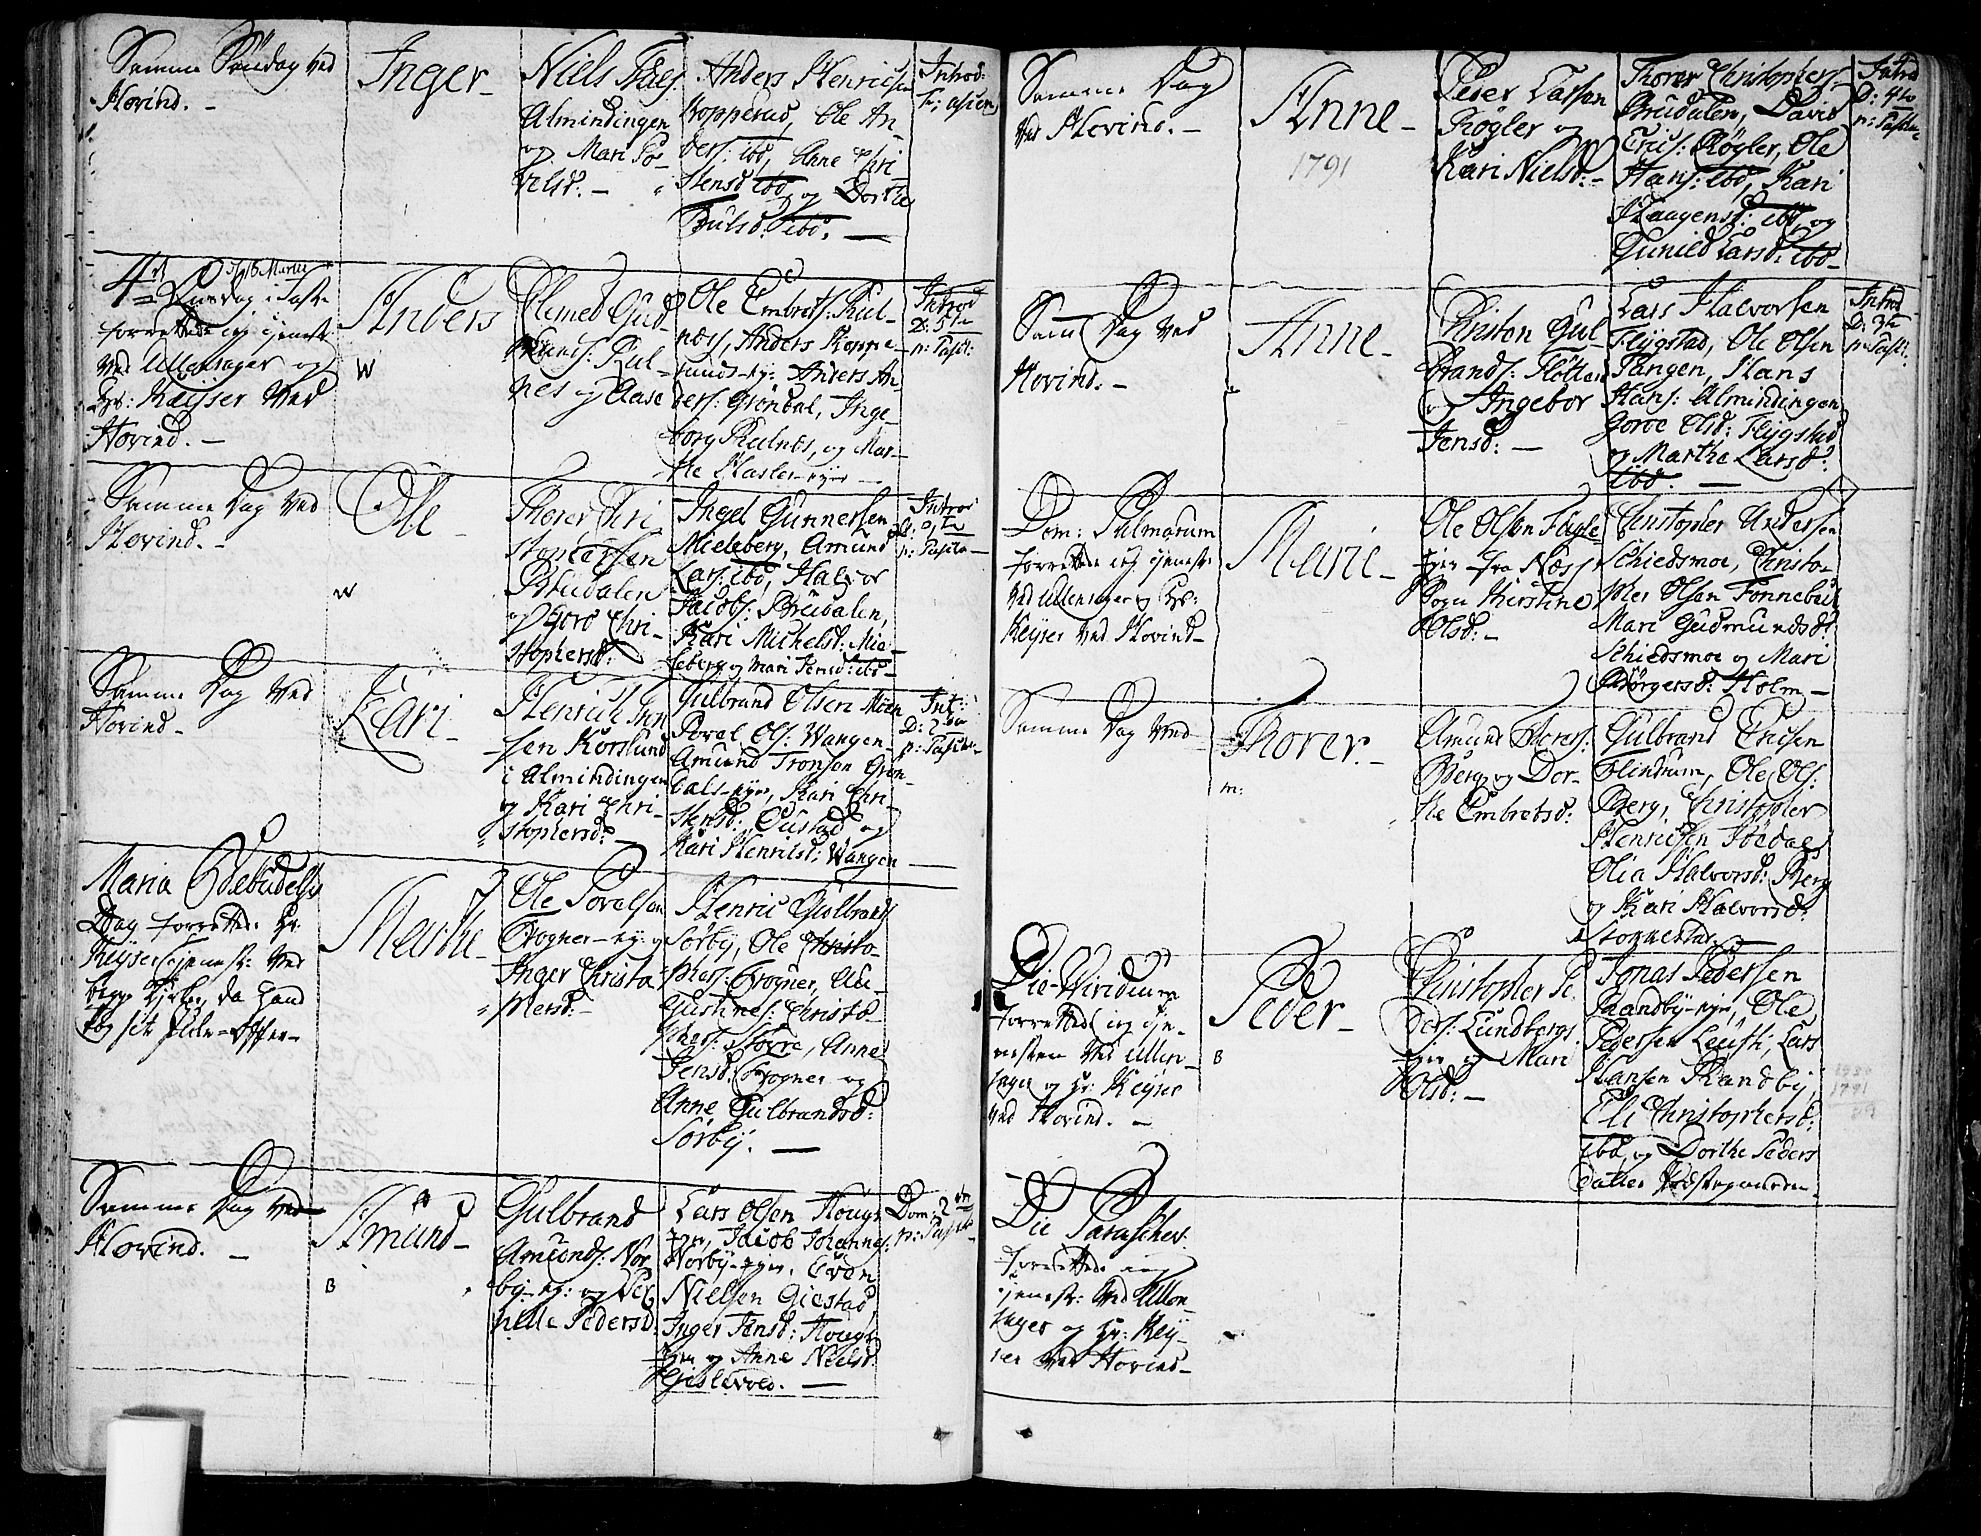 Samme Söndag ved
Hovind. –
Inger –
Niels
Almindingen
og Mari Po-
velsd: –
Anders Henricsen
Kopperud, Ole An-
ders: ibd, Anne Chri
stensd ibd, og Dorthe
ibd. –
Introd:
4de Söndag i Faste
forrettede jeg tjenest:
ved Ullensager og
Hr: Keijser ved
Hovind. –
Anders
W
Gud-
munds: Kul-
nes og Aase
Ole Embrets: Kul-
næs, Anders Koppe-
ruds-ey: Anders An-
ders: Grönbal, Inge-
borg Kulnæs, og Mar-
the Hasler-eyer –
Introd
D: 5te
p: Pasch:
Samme Dag ved
Hovind. –
Ole –
w
Thorer Chri
stophersen
Brudalen
og Goro Chri-
stophersd:
Ingel Gunnersen
Mieleberg, Amund
Lars: ibd, Halvor
Jacobs: Brudalen,
Kari Michelsd: Mie-
leberg og Mari Jensd: ibd –
Introd
p: Pascha –
Samme Dag ved
Hovind –
Kari –
Henrich
sen Korslund
i Almindingen
og Kari Chri-
stophersd: –
Gulbrand Olsen Moen
Povel Ols: Wangen
Amund Tronsen Grön-
bals-eyer, Kari Chri-
stensd: Custad og
Kari Henriesd: Wangen –
Int:
D: 2da
p: Pascha –
Maria Bebudelses
Dag forrettede Hr.
Keyser tjenest: ved
begge Kirker, da hand
Marthe –
Ole Povelsen
Frogner-ey: og
Inger Christo
phersd: –
Henric Gulbrands
Sörby, Ole Christo-
phers: Frogner, Au-
gustines: Christo-
phers: Hovre, Anne
Jensd: Frogner og
Anne Gulbrandsd:
Sörby. –
Samme Dag ved
Hovind. –
Amund –
B
Gulbrand
Amunds: Nor
by-ey: og Per
nille Pedersd
Lars Olsen Houg-
eyer, Jacob Johannes:
Norby-eyer, Even
Nielsen Giestad
Inger Jensd: Houg-
eyer og Anne Nielsd:
Gislevold. –
Dom: 2den
p: Pasch –
Samme Dag
ved Hovind. –
Anne –
1791
Peder Larsen
Rögler og
Kari Nielsd: –
Thorer Christophers
Brudalen, David
Erics: Rögler, Ole
Hans: ibd, Kari
Haagensd: ibd, og
Gunild Larsd: ibd –
Introd
D: 4ta
p: Pascha
Sam Dag ved
Hovind. –
Anne –
Christen Gul
brands: Flötten
og Ingebor
Jensd: –
Lars Halvorsen
Flygstad, Ole Olsen
Pangen, Hans
Hans: Almindingen
Goroe Olsd: Flygstad
og Marthe Larsd:
ibd. –
Introd
D: 3tia
p: Pasch:
Dom: Palmarum
forrettede jeg tjenest:
ved Ullensager og Hr:
Keyser ved Hovind –
Marie –
Ole Olsen Fugle
eyer fra Næss
Sogn Kirstine
Olsd: –
Christopher Andersen
Schiedsmoe, Christo-
pher Olsen Tonneboe
Mari Gudmundsd:
Schiedsmoe og Mari
Börgersd: Holm –
Samme Dag ved
Thorer. –
m:
Amund Thores:
Berg og Dor-
the Embretsd:
Gulbrand Ericsen
Flindrum, Ole Ols:
Berg, Christopher
Henricsen
Olia Halvorsd: Berg
og Kari Halvorsd:
Die Viridium
forrettede jeg tje-
nesten ved Ullen-
sager og Hr: Keyser
ved Hovind. –
Peder –
B
Christopher Pe-
ders: Lundbergs-
eyer og Mari
Olsd: –
Jonas Pedersen
Randby-eyer, Ole
Pedersen Lausti, Lars
Hansen Randby,
Eli Christophersd:
ibd, og Dorthe Peders
datter
1791
Die Parasceves
forrettede jeg
tjenest: ved Ullen-
sager og Hr: Key-
ser ved Hovind –